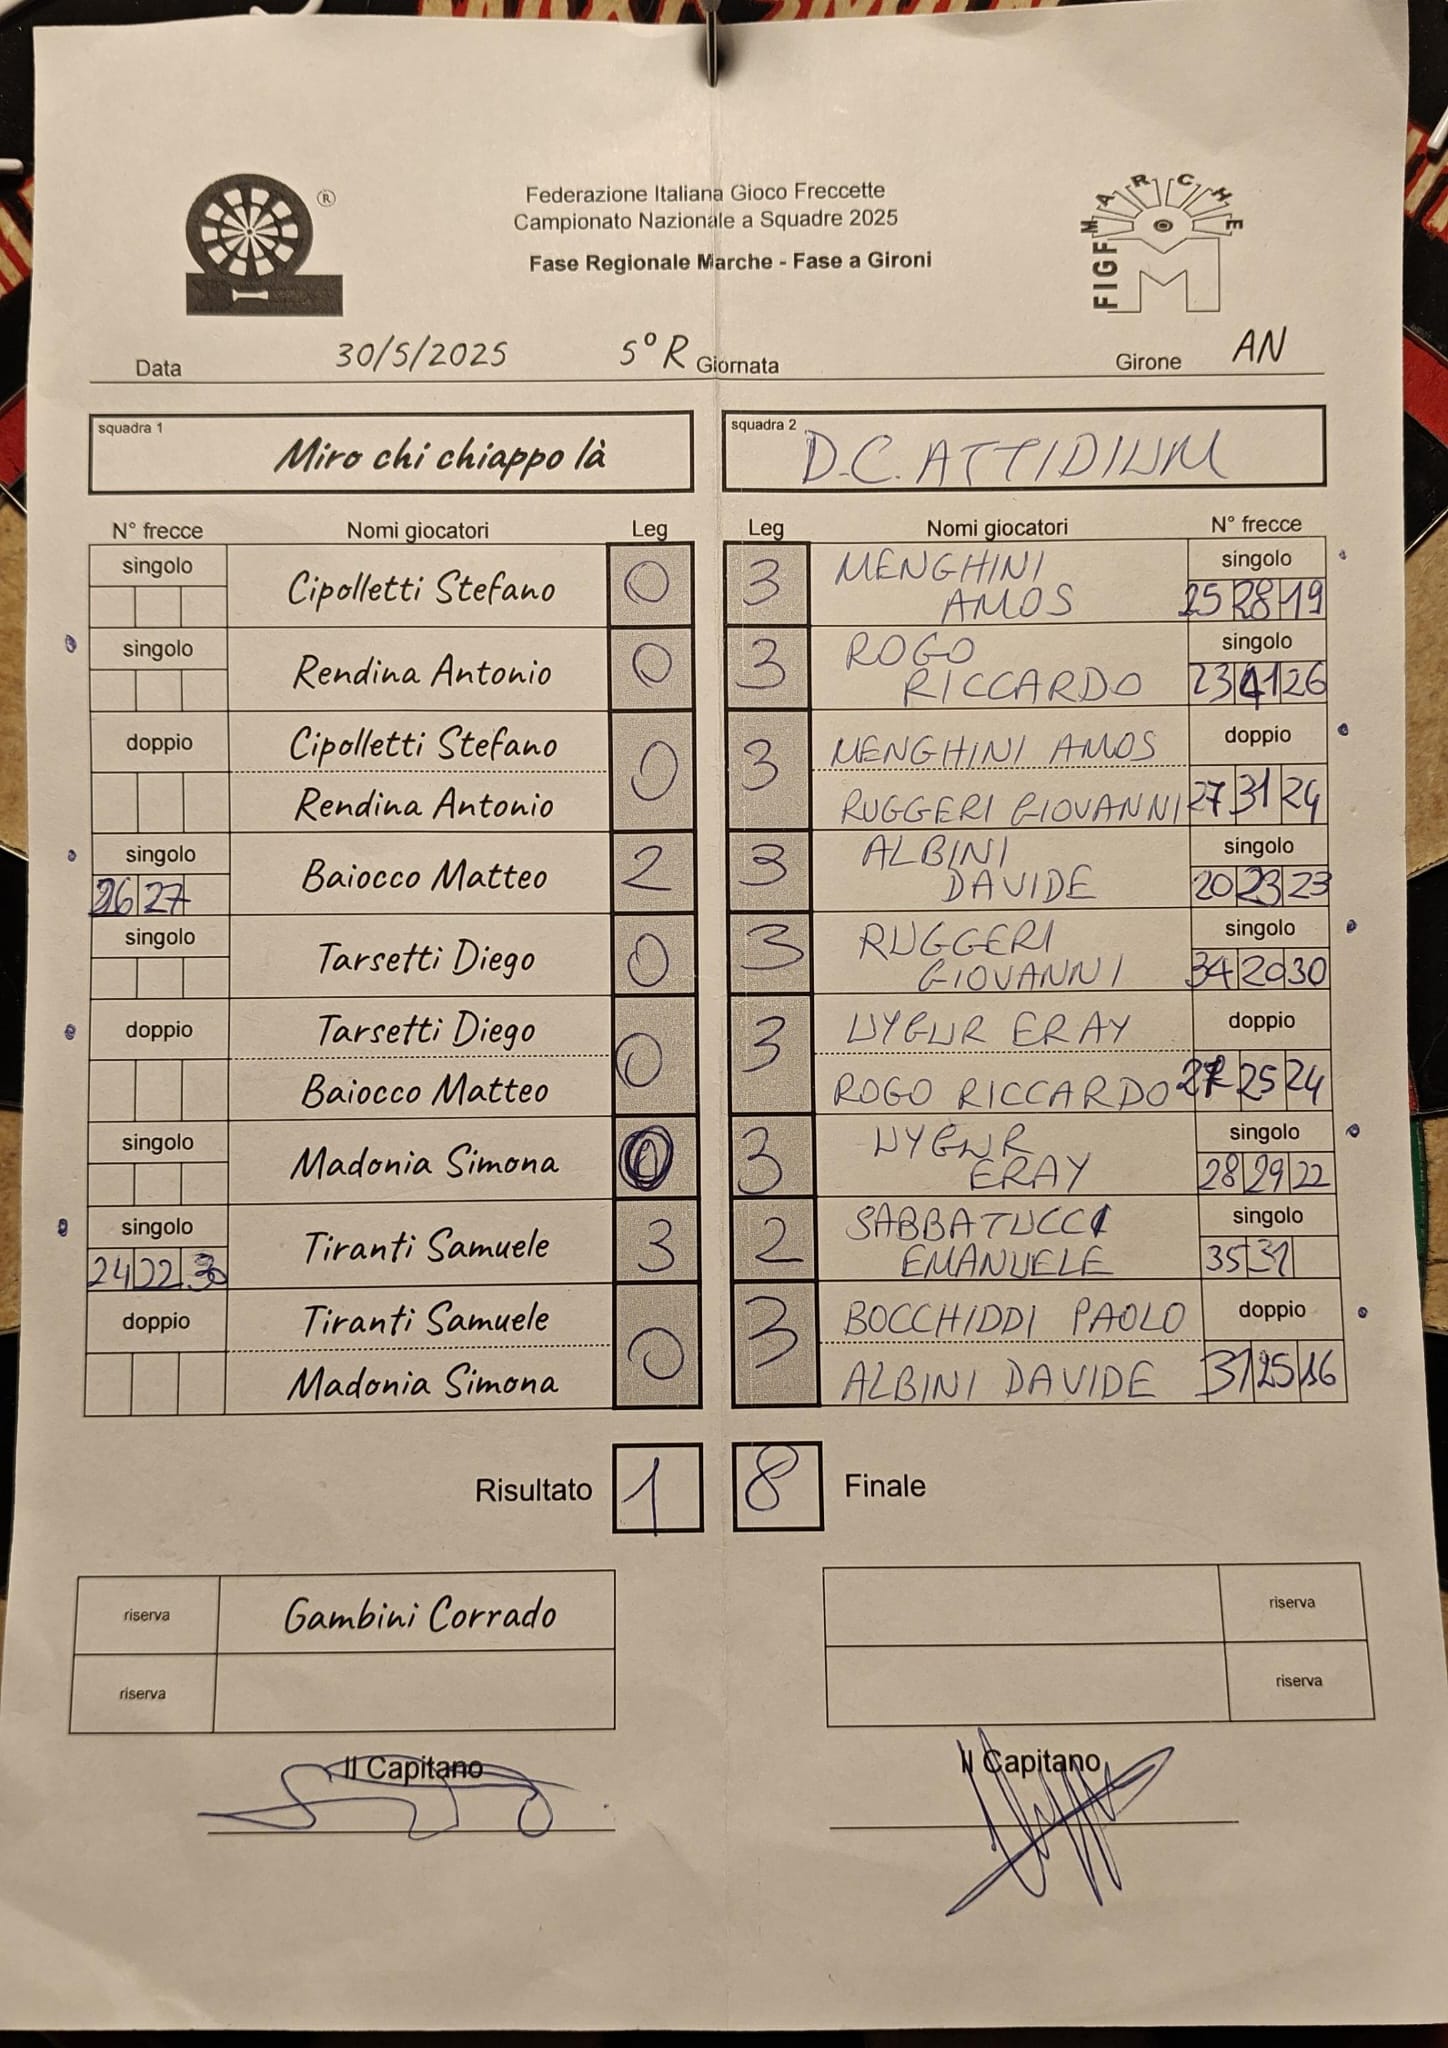 ®
Federazione Italiana Gioco Freccette
Campionato Nazionale a Squadre 2025
Fase Regionale Marche - Fase a Gironi
FIGF MARCHE
M
Data 30/5/2025 5° R Giornata Girone AN
squadra 1 Miro chi chiappo là
squadra 2 D.C. ATTIDIUM
N° frecce Nomi giocatori Leg Leg Nomi giocatori N° frecce
singolo Cipolletti Stefano 0 3 MENGHINI AMOS singolo 25 28 19
singolo Rendina Antonio 0 3 ROGO RICCARDO singolo 23 41 26
doppio Cipolletti Stefano 0 3 MENGHINI AMOS doppio
Rendina Antonio RUGGERI GIOVANNI 27 31 24
singolo 26 27 Baiocco Matteo 2 3 ALBINI DAVIDE singolo 20 23 23
singolo Tarsetti Diego 0 3 RUGGERI GIOVANNI singolo 34 20 30
doppio Tarsetti Diego 0 3 UYGUR ERAY doppio
Baiocco Matteo ROGO RICCARDO 25 24
singolo Madonia Simona 0 3 UYGUR ERAY singolo 28 29 22
singolo 24 22 30 Tiranti Samuele 3 2 SABBATUCCI EMANUELE singolo 35 31
doppio Tiranti Samuele 0 3 BOCCHIDDI PAOLO doppio
Madonia Simona ALBINI DAVIDE 31 25 16
Risultato 1 8 Finale
riserva Gambini Corrado riserva
riserva riserva
Il Capitano Il Capitano